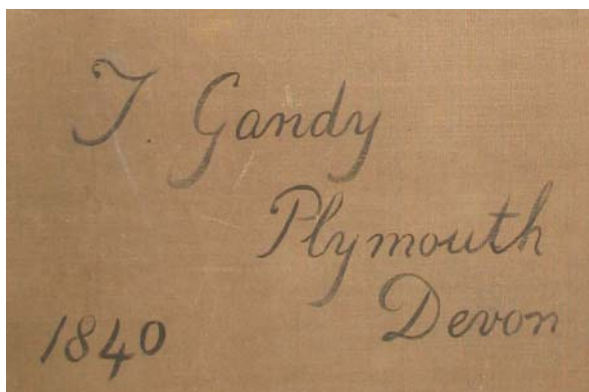 T. Gandy
Plymouth
Devon
1840